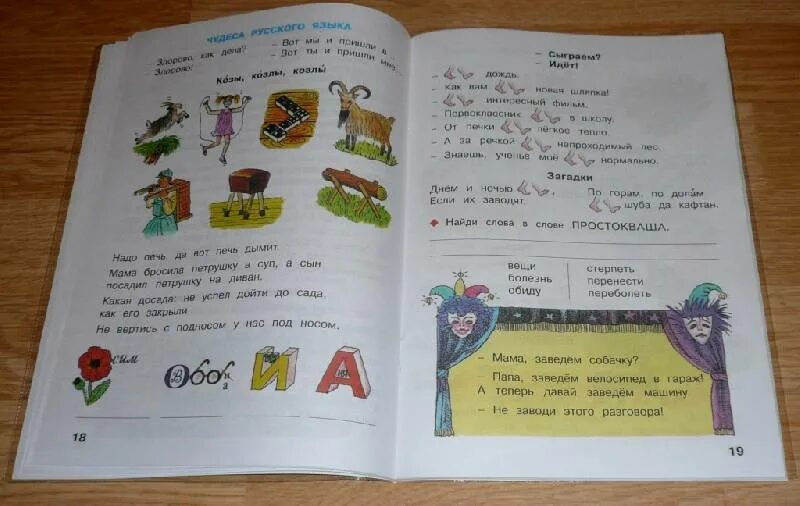 ЧУДЕСА РУССКОГО ЯЗЫКА
– Здорово, как дела?
– Здорово!
– Вот мы и пришли в
– Вот ты и пришли мне...
Ко́зы, ко́злы, козлы́
Надо печь, да вот печь дымит.
Мама бросила петрушку в суп, а сын
посадил петрушку на диван.
Какая досада: не успел дойти до сада,
как его закрыли.
Не вертись с подносом у нас под носом.
И
А
18
– Сыграем?
– Идёт!
– дождь.
– Как вам новая шляпка!
– интересный фильм.
– Первоклассник в школу.
– От печки лёгкое тепло.
– А за речкой непроходимый лес.
– Знаешь, ученье моё нормально.
Загадки
Днём и ночью ,
Если их заводят.
По горам, по дола́м
шуба да кафтан.
Найди слова в слове ПРОСТОКВАША.
вещи
болезнь
обиду
стерпеть
перенести
переболеть
– Мама, заведём собачку?
– Папа, заведём велосипед в гараж!
А теперь давай заведём машину.
– Не заводи этого разговора!
19